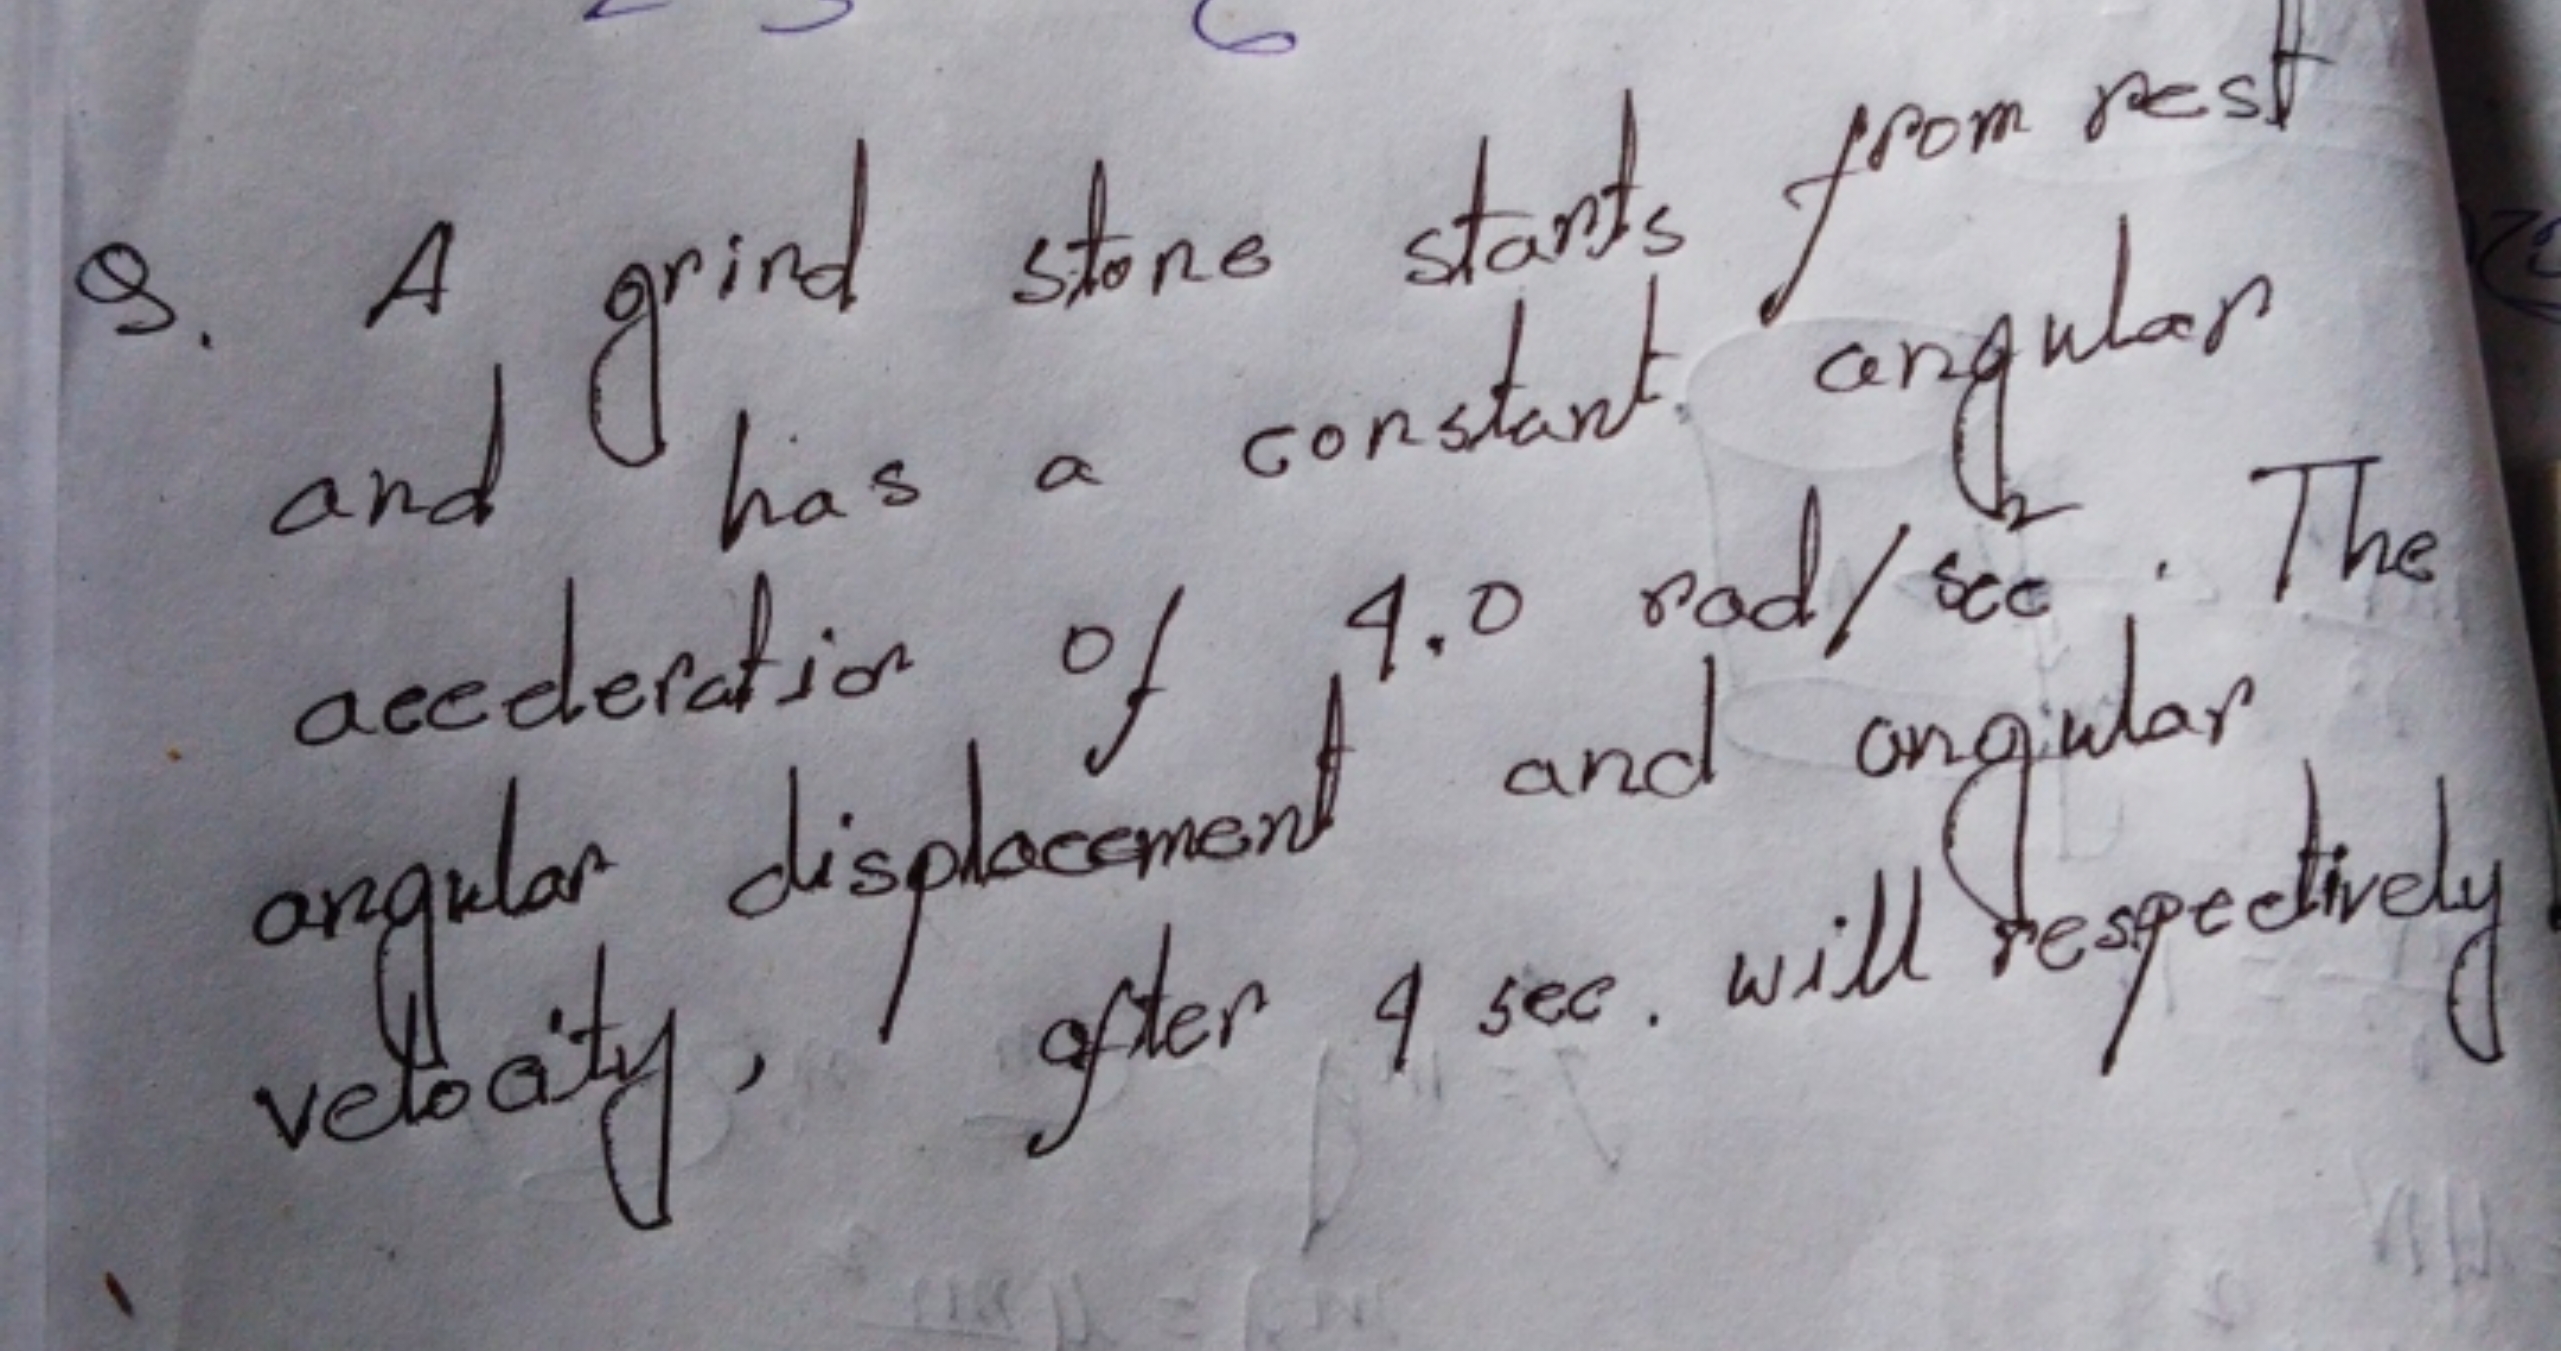 Q. A grind stone starts from rest
and has a constant angular
acceleration of 4.0 rad/sec². The
angular displacement and angular
velocity, after 4 sec. will respectively